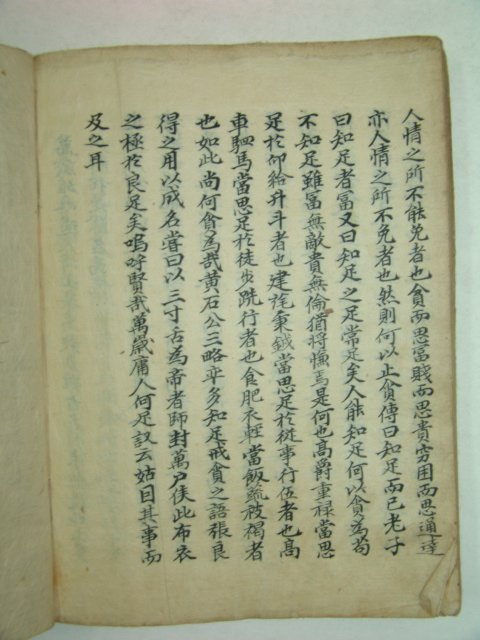 人情之所不能免者也貧而思富賤而思貴窮困而思通達
亦人情之所不免者也然則何以止貧傳曰知足而已老子
曰知足者富又曰知足之足常足矣人能知足何以貧為苟
不知足雖富無敵貴無倫猶將慊焉是何也高爵重祿當思
足於仰給升斗者也建旄秉鉞當思足於從事行伍者也高
車駟馬當思足於徒步跣行者也食肥衣輕當飯疏被褐者
也如此尚何貧為哉黃石公三略率多知足戒貪之語張良
得之用以成名嘗曰以三寸舌為帝者師封萬戶侯此布衣
之極於良足矣嗚呼賢哉萬歲庸人何足議云姑因其事而
及之耳